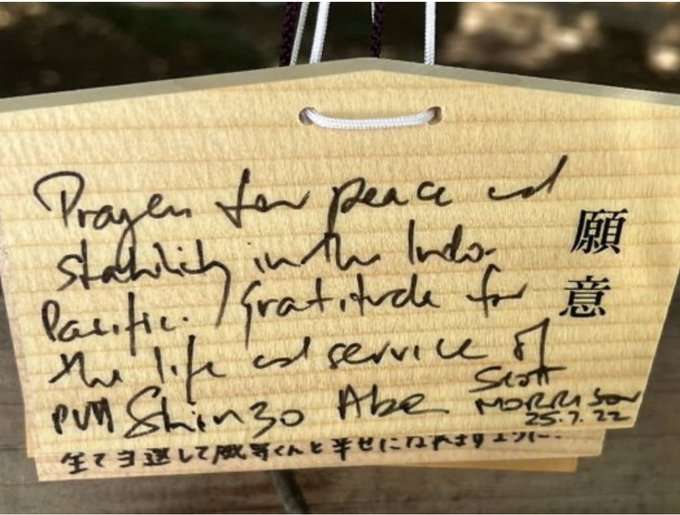 Prayers for peace and
stability in the Indo-
Pacific. Gratitude for
the life and service of
PVM Shinzo Abe
Scott
MORRISON
25.7.22
願意
して
くんと幸せに
ように.